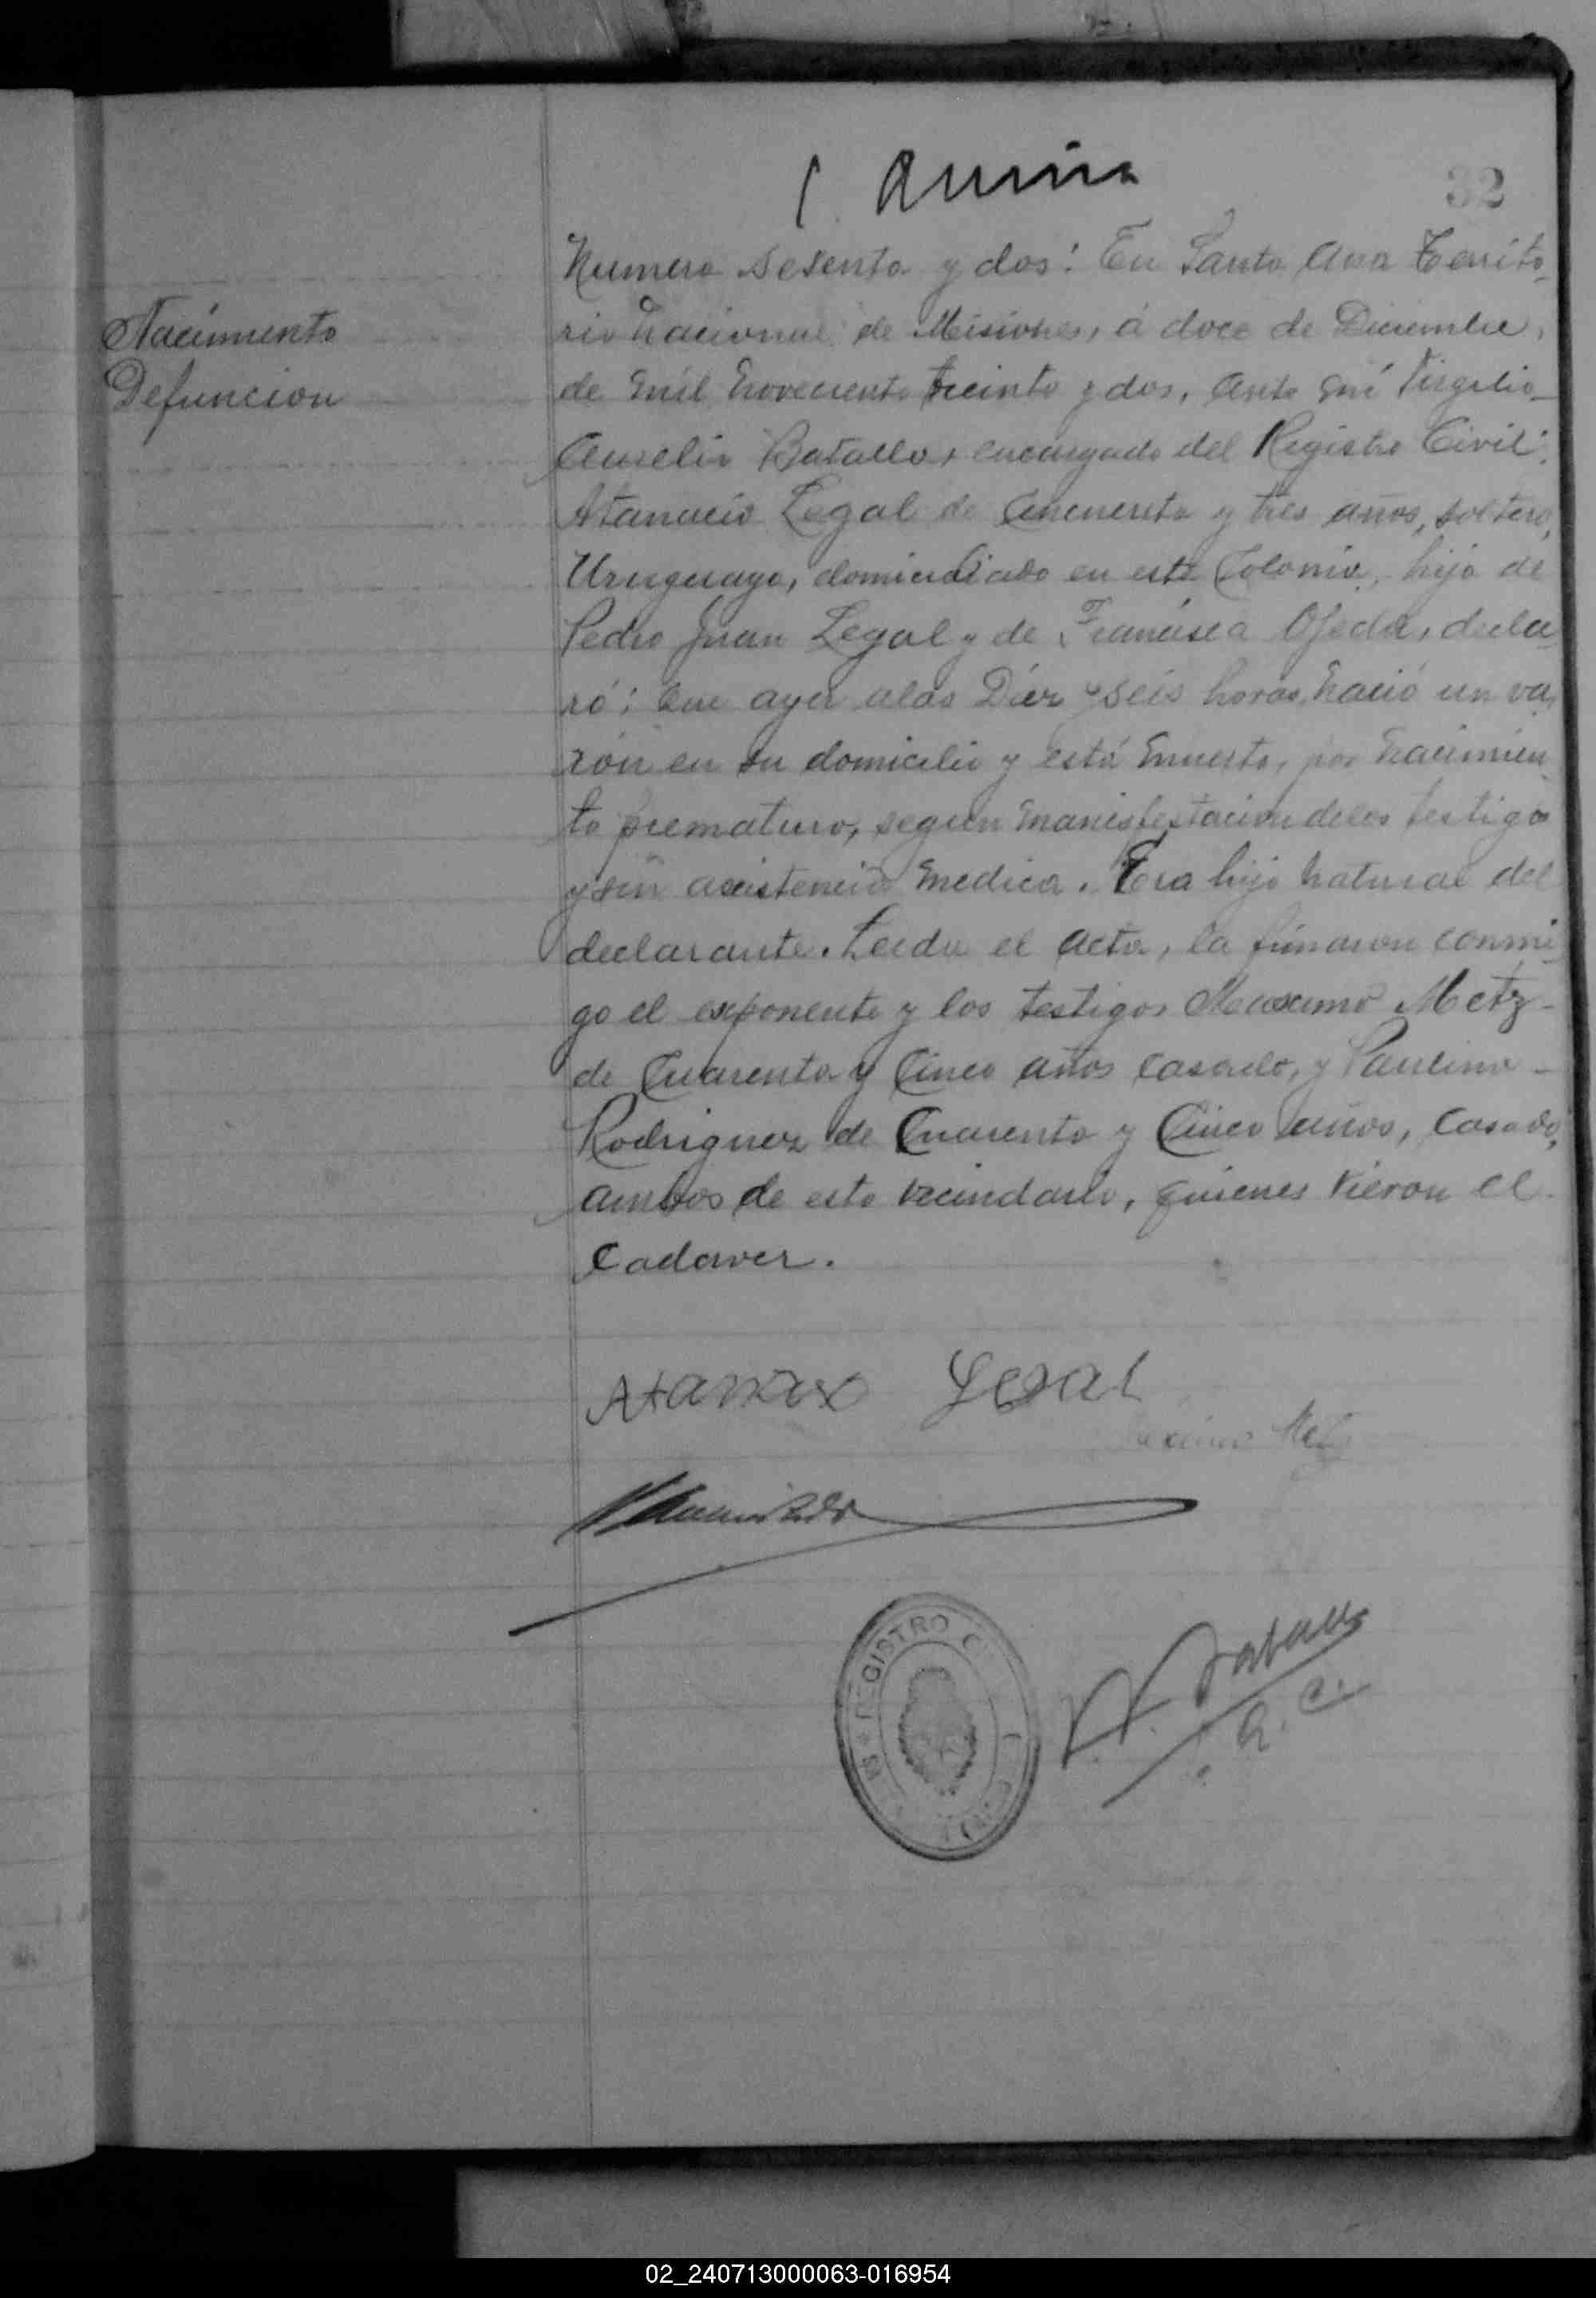 32
Numero sesenta y dos: En Santa Ana Territo-
rio Nacional de Misiones, á doce de Diciembre,
de mil novecientos treinta y dos, ante mí Virgilio
Aurelio Batalla, encargado del Registro Civil:
Atanacio Legal de Cincuenta y tres años, soltero,
Uruguayo, domiciliado en esta Colonia, hijo de
Pedro Juan Legal y de Francisca Ojeda, decla-
ró: Que ayer a las Diez y seis horas, nació un va-
rón en su domicilio y está muerto, por nacimien-
to prematuro, segun manisfestacion de los testigos
y sin asistencia medica. Era hijo natural del
declarante. Leida el acta, la firmaron conmi-
go el exponente y los testigos Maximo Metz-
de Cuarenta y Cinco años casado, y Paulino-
Rodriguez de Cuarenta y Cinco años, Casado,
ambos de este vecindario, quienes vieron el
Cadaver.
Nacimiento
Defuncion
Legal
REGISTRO
02_240713000063-016954